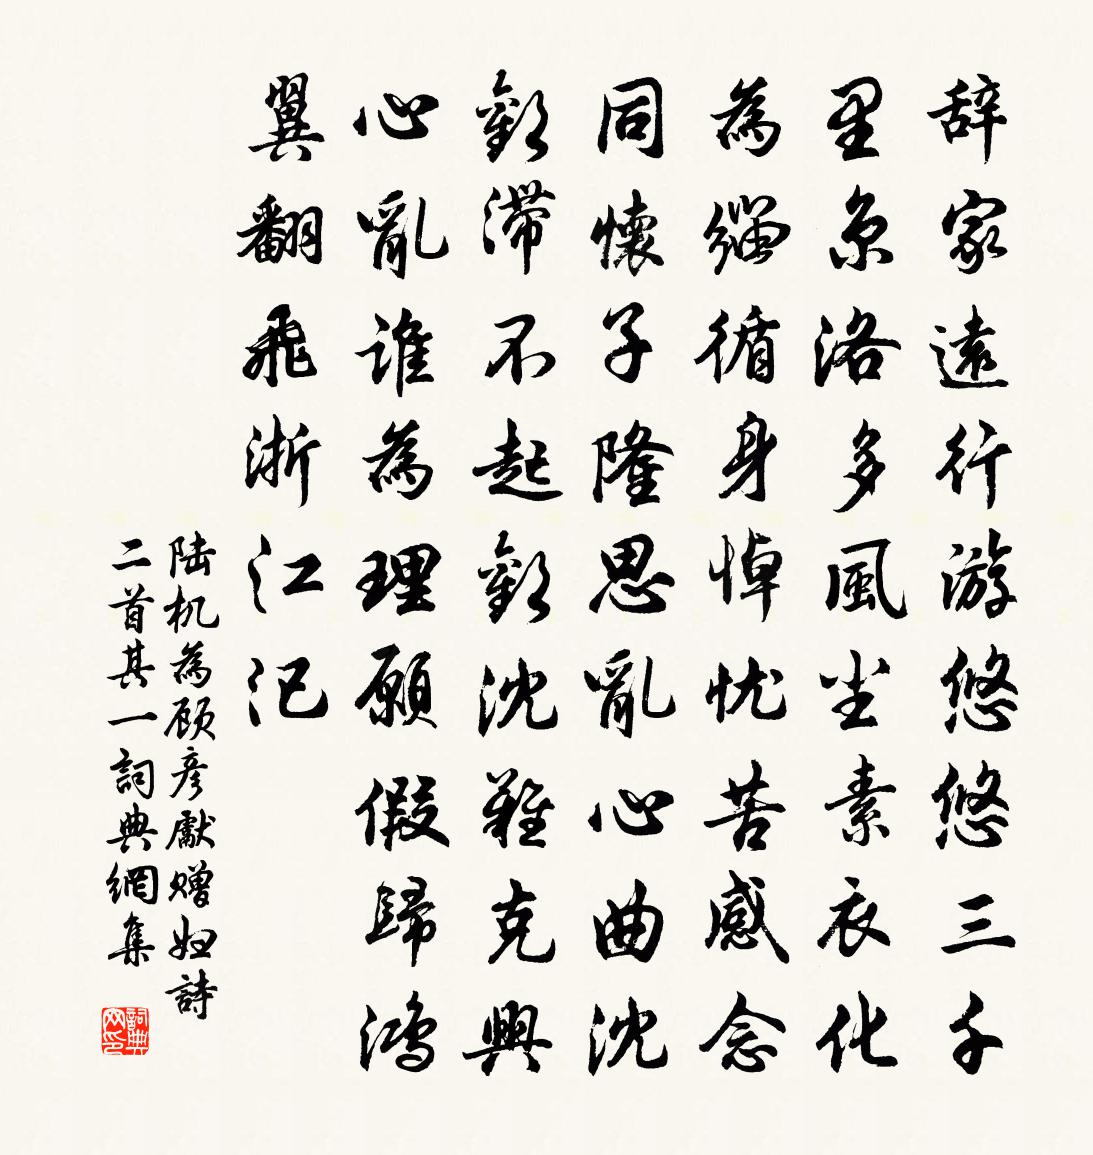 辞家遠行游悠悠三千
里京洛多風尘素衣化
為缁循身悼忧苦感念
同懷子隆思亂心曲沈
歡滞不起歡沈難克興
心亂誰為理願假歸鸿
翼翻飛浙江汜
陆机為顾彦獻赠妇詩
二首其一詞典網集
詞典网印